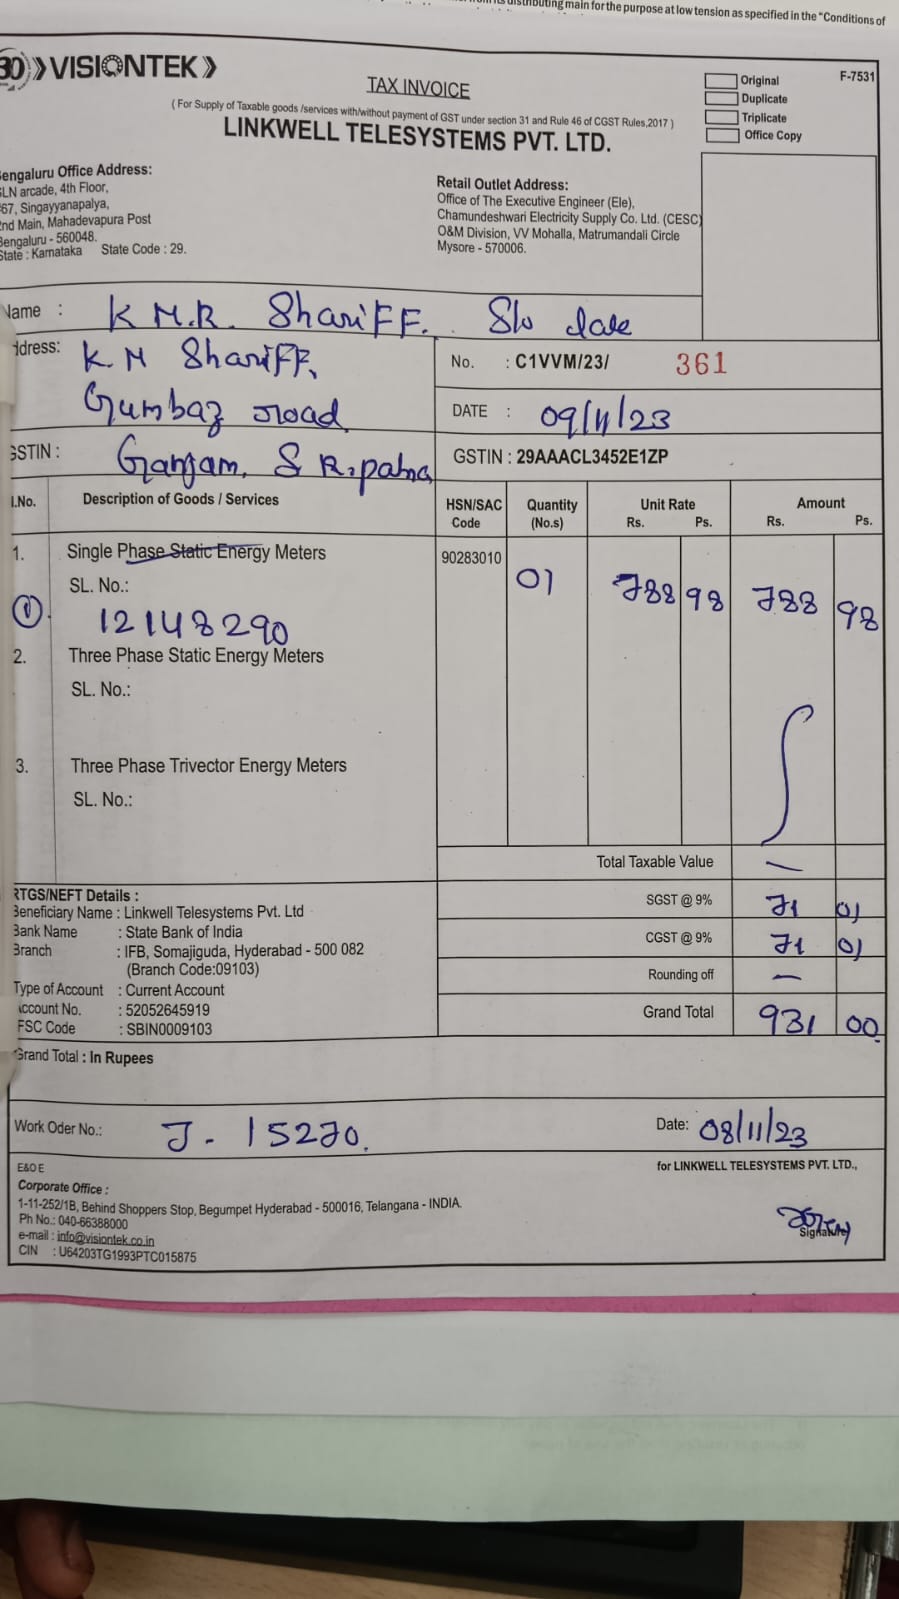 its distributing main for the purpose at low tension as specified in the "Conditions of
30 VISIONTEK
TAX INVOICE
Original
F-7531
Duplicate
Triplicate
Office Copy
( For Supply of Taxable goods /services with/without payment of GST under section 31 and Rule 46 of CGST Rules,2017 )
LINKWELL TELESYSTEMS PVT. LTD.
Bengaluru Office Address:
SLN arcade, 4th Floor,
#67, Singayyanapalya,
2nd Main, Mahadevapura Post
Bengaluru - 560048.
State : Karnataka State Code : 29.
Retail Outlet Address:
Office of The Executive Engineer (Ele),
Chamundeshwari Electricity Supply Co. Ltd. (CESC)
O&M Division, VV Mohalla, Matrumandali Circle
Mysore - 570006.
Name : K M.R. Shariff. S/o late
Address: K. M Shariff,
Gumbaz road
GSTIN : Ganjam, S R.patna
No. : C1VVM/23/ 361
DATE : 09/11/23
GSTIN : 29AAACL3452E1ZP
Sl.No. Description of Goods / Services HSN/SAC Code Quantity (No.s) Unit Rate Rs. Ps. Amount Rs. Ps.
1. Single Phase Static Energy Meters 90283010 01 788 98 788 98
SL. No.:
① 12148290
2. Three Phase Static Energy Meters
SL. No.:
3. Three Phase Trivector Energy Meters
SL. No.:
Total Taxable Value —
SGST @ 9% 71 01
CGST @ 9% 71 01
Rounding off —
Grand Total 931 00
RTGS/NEFT Details :
Beneficiary Name : Linkwell Telesystems Pvt. Ltd
Bank Name : State Bank of India
Branch : IFB, Somajiguda, Hyderabad - 500 082
(Branch Code:09103)
Type of Account : Current Account
Account No. : 52052645919
IFSC Code : SBIN0009103
Grand Total : In Rupees
Work Oder No.: J - 15270.
Date: 08/11/23
E&O E
for LINKWELL TELESYSTEMS PVT. LTD.,
Corporate Office :
1-11-252/1B, Behind Shoppers Stop, Begumpet Hyderabad - 500016, Telangana - INDIA.
Ph No.: 040-66388000
e-mail : info@visiontek.co.in
CIN : U64203TG1993PTC015875
Signature